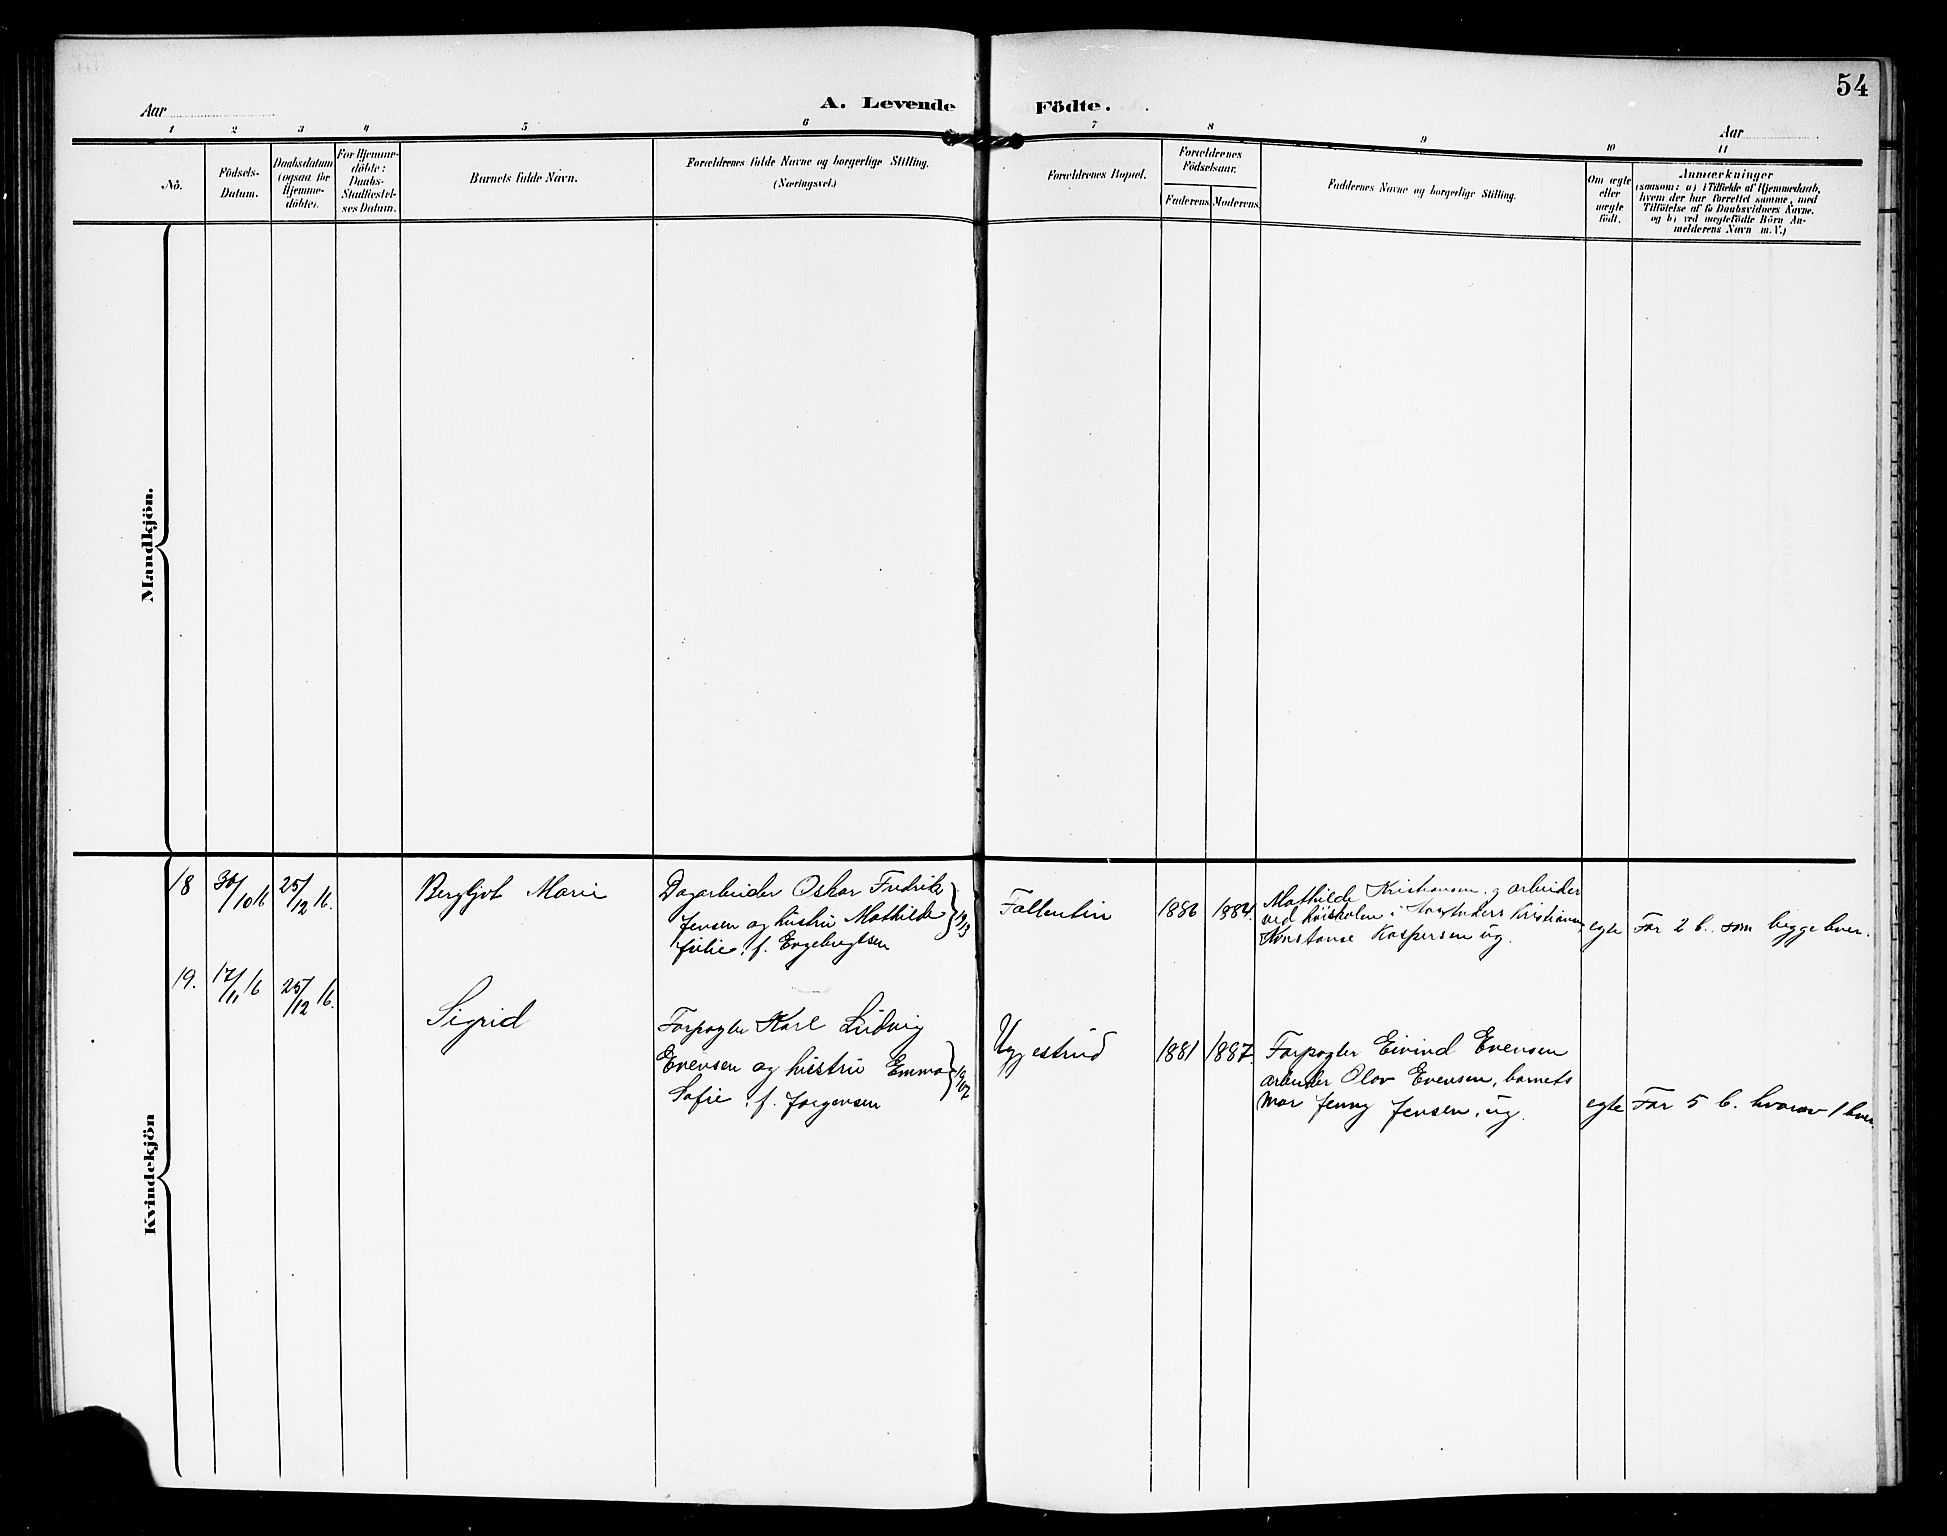 54
Aar
A. Levende Födte.
Aar
1 2 3 4 5 6 7 8 9 10 11
No.
Födsels-
Datum.
Daabsdatum
(ogsaa for
Hjemme-
döbte).
For Hjemme-
döbte:
Daabs-
Stadfæstel-
ses Datum.
Barnets fulde Navn.
Forældrenes fulde Navne og borgerlige Stilling.
(Næringsvei.)
Forældrenes Bopæl.
Forældrenes
Födselsaar.
Faderens Moderens
Faddernes Navne og borgerlige Stilling.
Om ægte
eller
uægte
födt.
Anmærkninger
(saasom: a) i Tilfælde af Hjemmedaab,
hvem der har forrettet samme, med
Tilföielse af to Daabsvidners Navne.
og b) ved uægtefödte Börn An-
melderens Navn m. V.)
Mandkjön.
Kvindekjön
18 30/10 16 25/12 16. Bergljot Marie
Dagarbeider Oskar Fredrik
Jensen og hustru Mathilde
Julie, f. Engebrigtsen
Follentin 1886 1884.
Mathilde Kristiansen, g arbeider
Konstanse Kaspersen ug.
egte Før 2 b. som begge lever.
19. 17/11 16 25/12 16. Sigrid
Forpagter Karl Ludvig
Evensen og hustru Emma
Sofie, f. Jørgensen
Uggestrud 1881 1887.
Forpagter Eivind Evensen
arbeider Olav Evensen, barnets
mor Jenny Jensen, ug.
egte Før 5 b. hvorav 1 lever.